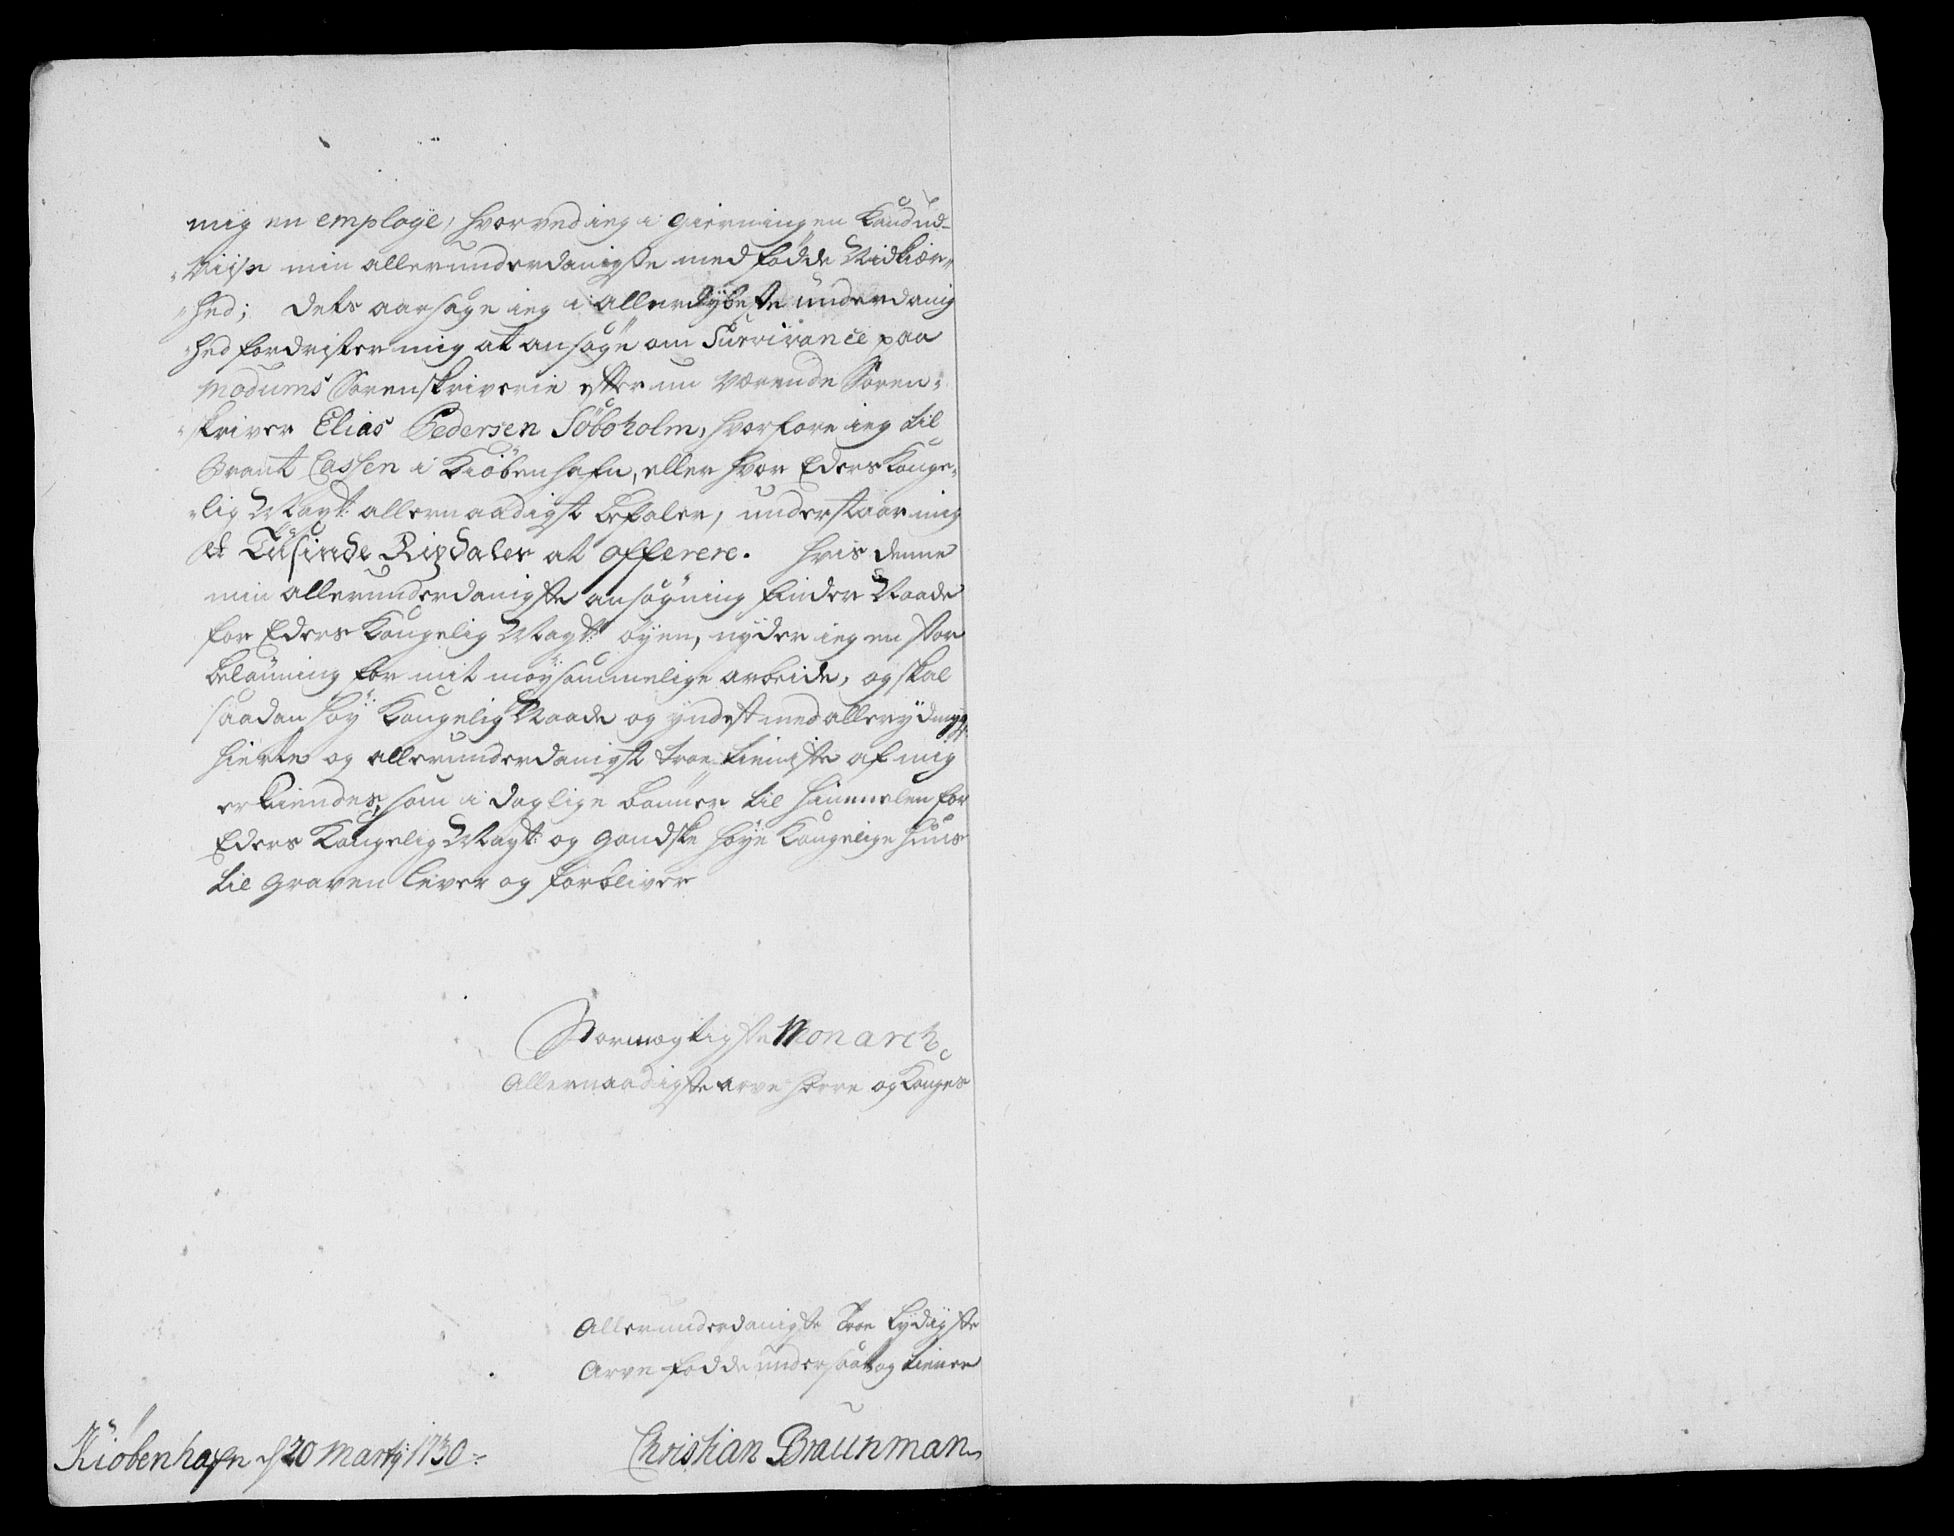 mig en employe, hvorved ieg i gierningen kand ud-
-viise min allerunderdanigste medfødde Nidkiær-
-hed; dets aarsage ieg i allerdybeste underdanig
-hed fordrister mig at ansøge om Survivance paa
Modums Sorenskriverie efter nu værende Soren-
-skriver Elias Pedersen Söboholm, hvorfore ieg til
Qvæst Cassen i Kiöbenhafn, eller hvor Eders Konge-
-lig Mayt: allernaadigst befaler, understaar mig
et Tusinde Rixdaler at offerere. Hvis denne
min allerunderdanigste ansøgning finder Naade
for Eders Kongelig Mayt: öyen, nyder ieg en stor
belöning for mit møysommelige arbeide, og skal
saadan höy Kongelig Naade og yndest med allerydmygst
hierte og allerunderdanigst troe tieniste af mig
erkiendes, som i daglige bönner til himmelen for
Eders Kongelig Mayt: og gandske höye Kongelige Huus
til graven lever og forbliver
Stormægtigste Monarch
Allernaadigste arve Herre og Konges
Allerunderdanigste troe lydigste
Arve fødde undersaat og tiener
Kiöbenhafn d 20 Marty: 1730
Christian Braunman